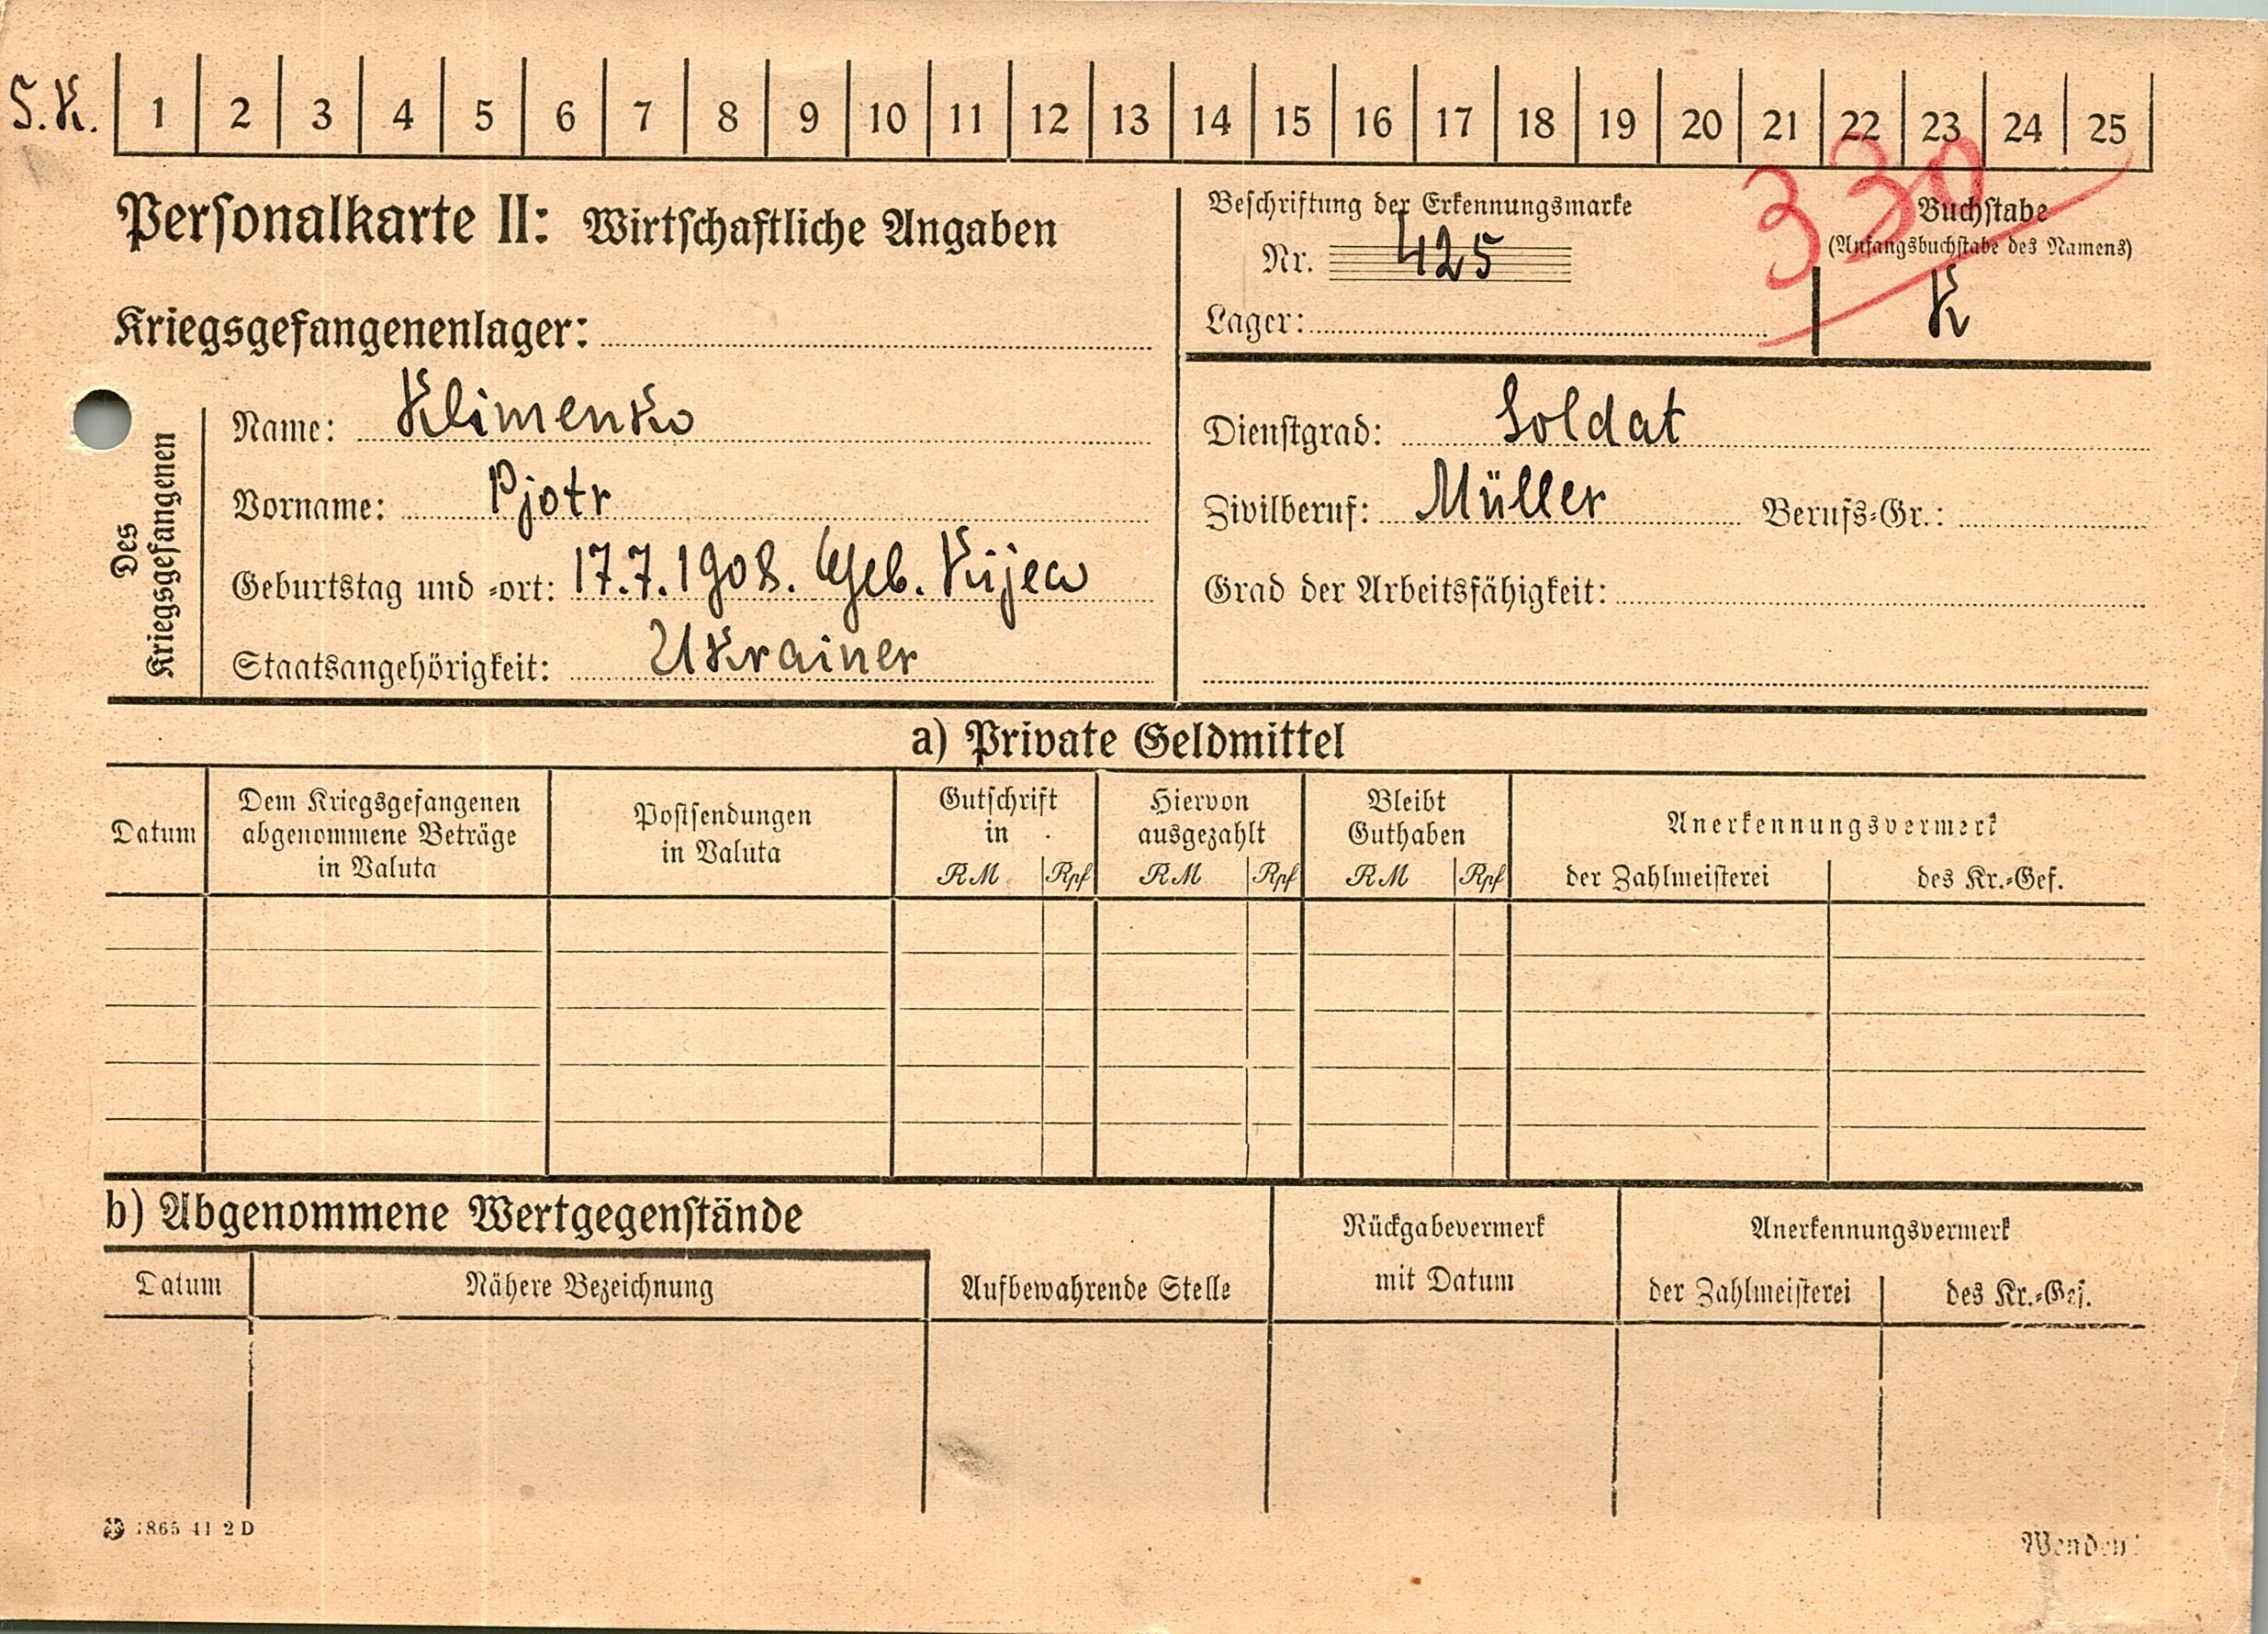 S.K. 1 2 3 4 5 6 7 8 9 10 11 12 13 14 15 16 17 18 19 20 21 22 23 24 25
330
Personalkarte II: Wirtschaftliche Angaben
Beschriftung der Erkennungsmarke
Nr. 425
Lager:
Buchstabe
(Anfangsbuchstabe des Namens)
K
Kriegsgefangenenlager:
Des
Kriegsgefangenen
Name: Klimenko
Vorname: Pjotr
Geburtstag und -ort: 17.7.1908. Geb. Kijew
Staatsangehörigkeit: Ukrainer
Dienstgrad: Soldat
Zivilberuf: Müller Berufs-Gr.:
Grad der Arbeitsfähigkeit:
a) Private Geldmittel
Datum
Dem Kriegsgefangenen
abgenommene Beträge
in Valuta
Postsendungen
in Valuta
Gutschrift
in
RM Rpf
Hiervon
ausgezahlt
RM Rpf
Bleibt
Guthaben
RM Rpf
Anerkennungsvermerk
der Zahlmeisterei des Kr.-Gef.
b) Abgenommene Wertgegenstände
Datum Nähere Bezeichnung
Aufbewahrende Stelle
Rückgabevermerk
mit Datum
Anerkennungsvermerk
der Zahlmeisterei des Kr.-Gef.
1865 41 2 D
Wenden!